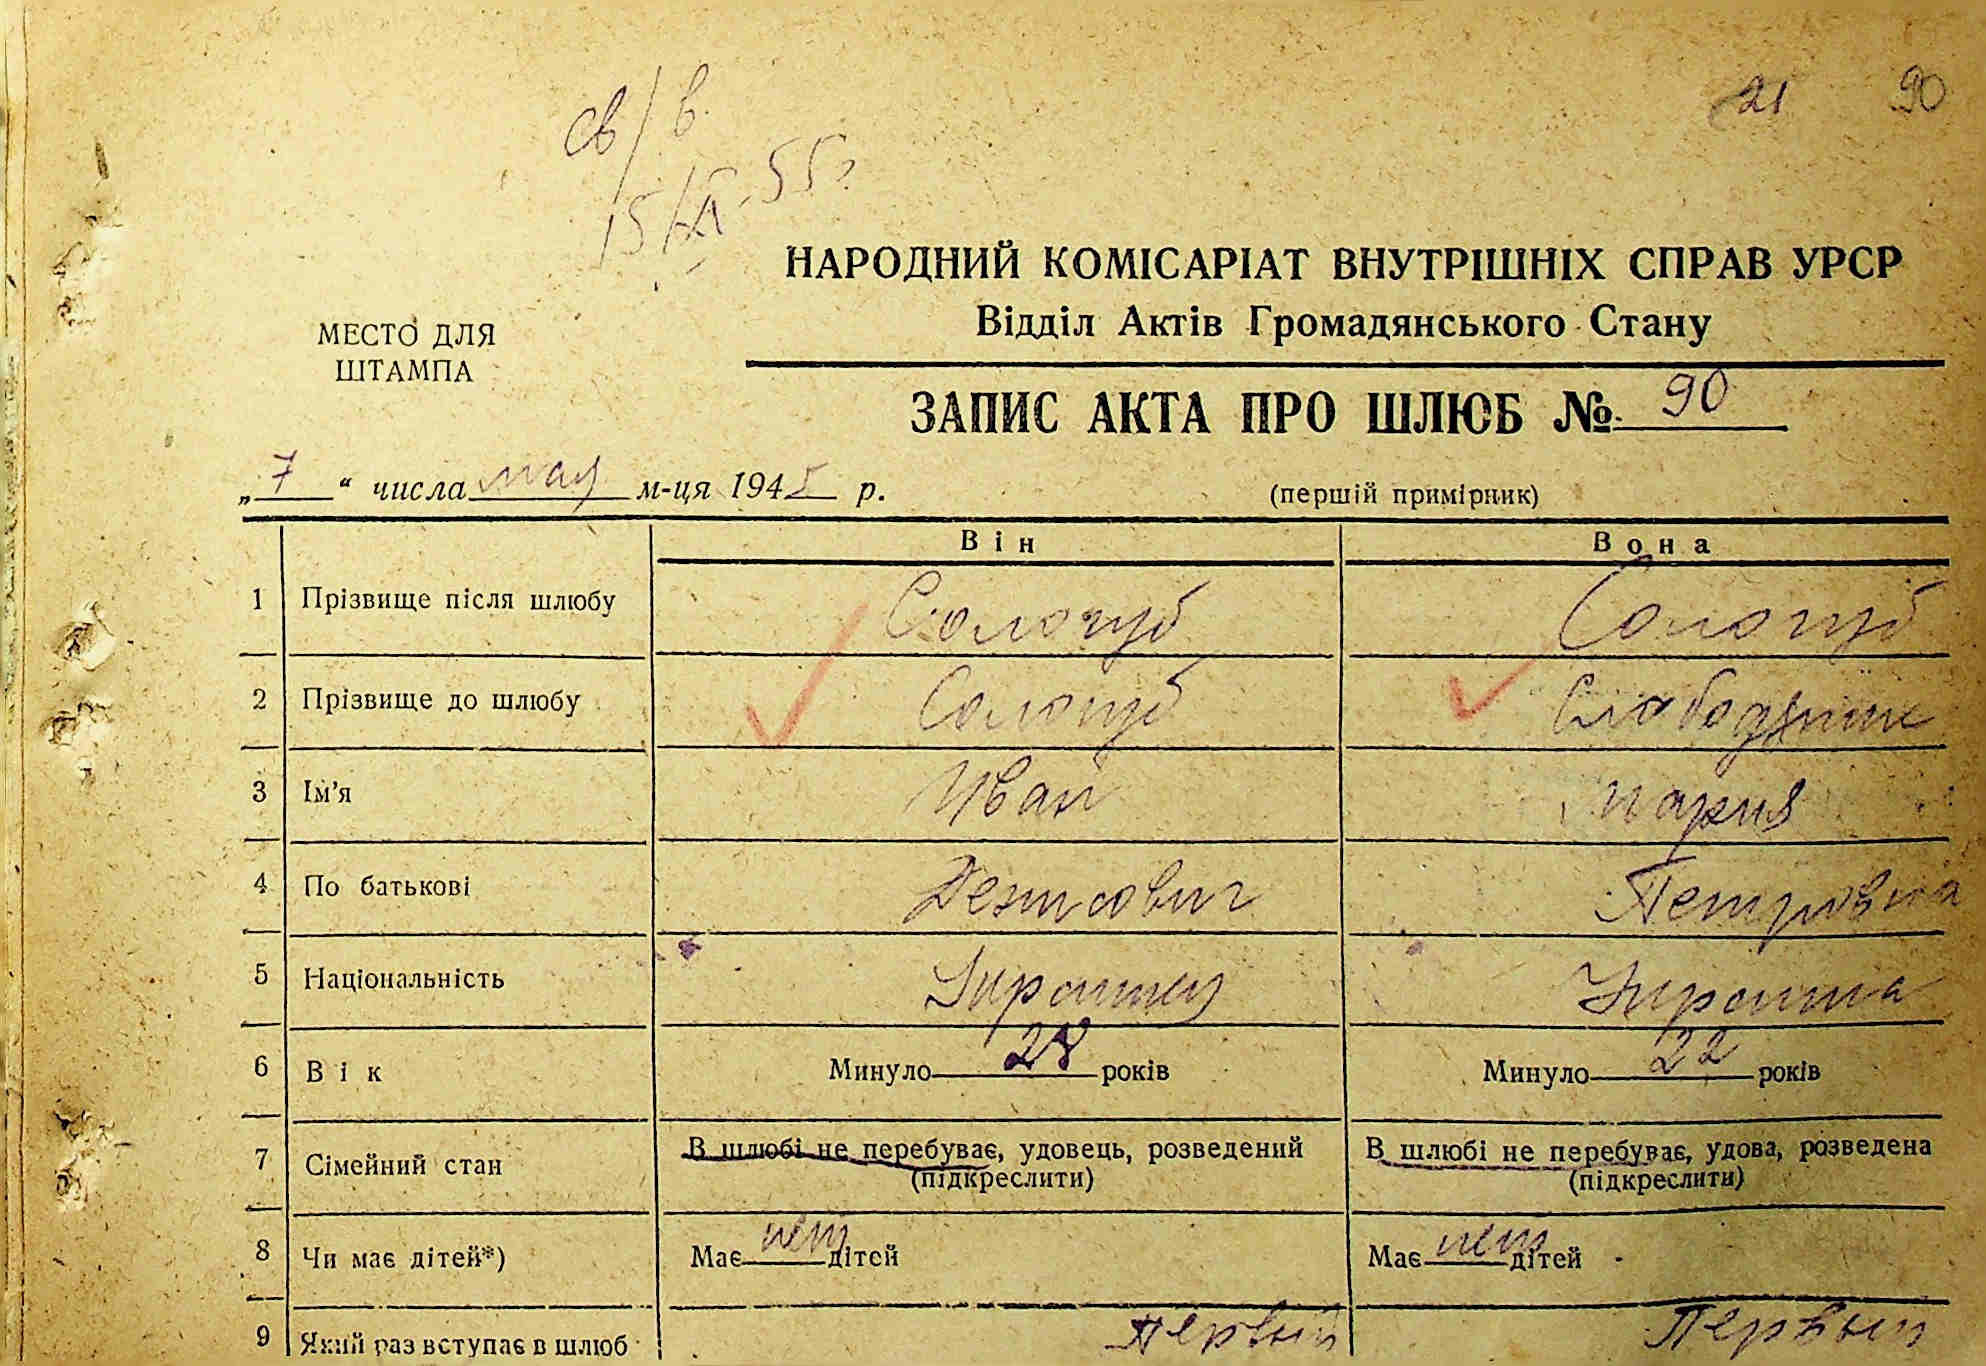 21 90
св/в.
15/IX-55г
НАРОДНИЙ КОМІСАРІАТ ВНУТРІШНІХ СПРАВ УРСР
Відділ Актів Громадянського Стану
МЕСТО ДЛЯ
ШТАМПА
ЗАПИС АКТА ПРО ШЛЮБ № 90
„7“ числа мая м-ця 1945 р.
(першій примірник)
Він Вона
1 Прізвище після шлюбу Сологуб Сологуб
2 Прізвище до шлюбу Сологуб
3 Ім’я Иван Мария
4 По батькові Денисович Петровна
5 Національність Украинец Украинка
6 Вік Минуло 28 років Минуло 22 років
7 Сімейний стан В шлюбі не перебуває, удовець, розведений В шлюбі не перебуває, удова, розведена
(підкреслити) (підкреслити)
8 Чи має дітей*) Має нет дітей Має нет дітей
9 Який раз вступає в шлюб Первый Первый